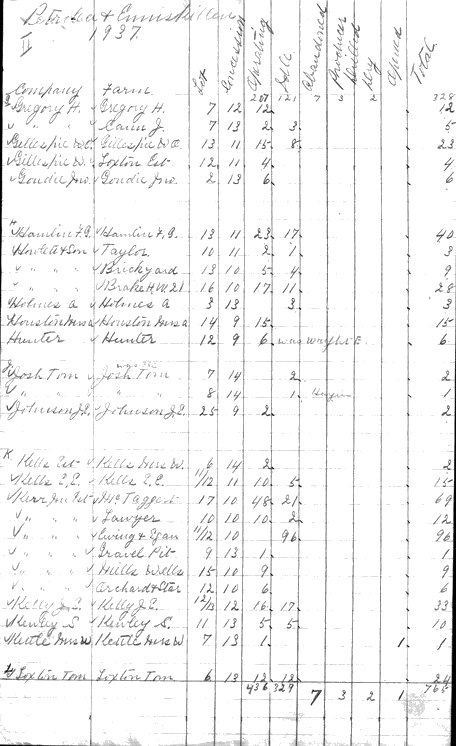 Petrolea & Enniskillen
II 1937.
Lot Concession Operating Idle Abandoned Producer Drilled Dry Opened Total
Company Farm 207 121 7 3 2 328
G Gregory H. Gregory H. 7 12 12 12
" " Cann J. 7 13 2 3 5
Gillespie W.C. Gillespie W.C. 13 11 15 8 23
Gillespie W. Loxton Est 12 11 4 4
Goudie Jno. Goudie Jno. 2 13 6 6
H Hamlin F.G. Hamlin F.G. 13 11 23 17 40
Howlett & Son Taylor 10 11 2 1 3
" " " Brickyard 13 10 5 4 9
" " " Brake H.W. 21 16 10 17 11 28
Holmes A Holmes A 3 13 3 3
Houston Mrs A Houston Mrs A 14 9 15 15
Hunter Hunter 12 9 6 was Wright E. 6
J Josh Tom Josh Tom 7 14 2 2
" " " " 8 14 1 1
Johnson J.E. Johnson J.E. 25 9 2 2
K Kells Est Kells Mrs W. 6 14 2 2
Kells E.E. Kells E.E. 11/12 11 10 5 15
Kerr Jno Est McTaggert 17 10 48 21 69
" " " Lawyer 10 10 10 2 12
" " " Ewing & Egan 11/12 10 96 96
" " " Gravel Pit 9 13 1 1
" " " Mills Wells 15 10 9 9
" " " Orchard & Star 12 10 6 6
Kelly J.E. Kelly J.E. 12/13 12 16 17 33
Kerley S. Kerley S. 11 13 5 5 10
Kettle Mrs W Kettle Mrs W 7 13 1 1 1
L Loxton Tom Loxton Tom 6 13 12 12 24
436 329 7 3 2 1 765